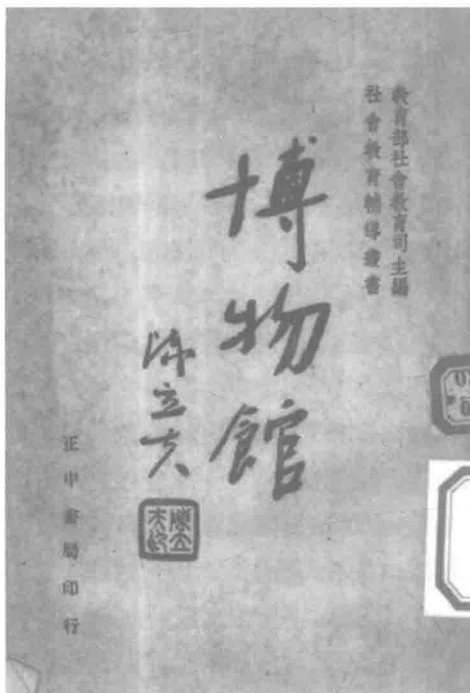 教育部社會教育司主編
社會教育輔導叢書
博物館
陳立夫
正中書局印行